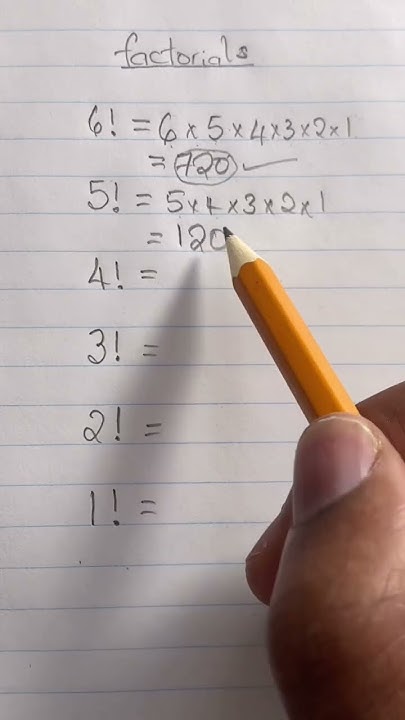 factorials
6! = 6 × 5 × 4 × 3 × 2 × 1
= 720
5! = 5 × 4 × 3 × 2 × 1
= 120
4! =
3! =
2! =
1! =